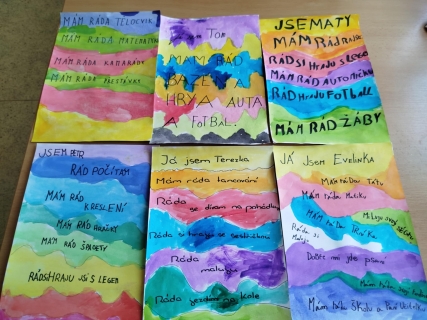 MÁM RÁDA TĚLOCVIK
MÁM RÁDA MATEMATIKU
MÁM RÁDA KAMARÁDY
MÁM RÁDA PŘESTÁVKY
TOM
MÁM RÁD
BAZÉN A
HRY A AUTA
A FOTBAL.
JSEM ATY
MÁM RÁD
RÁD SI HRAJU S LEGO
MÁM RÁD AUTOMATICKU
RÁD HRAJU FOTBALL
MÁM RÁD ŽÁBY
JSEM PETR
RÁD POČÍTÁM
MÁM RÁD
KRESLENÍ
MÁM RÁD HRAČKY
MÁM RÁD ŠPAGETY
RÁD SHRAJU JSI S LEGEM
Já jsem Terezka
Mám ráda tancování
Ráda
se dívám na pohádky
Ráda si hraju se sestřičkou
Ráda
maluju
Ráda jezdím na kole
JÁ Jsem EvelINKA
Mám ráda Tátu
Mám ráda Matiku
Miluju svojí
Mám ráda
Ráda si
maluju
Dobře mi jde psaní
Mám ráda
Mám ráda školu a Paní Učitelku